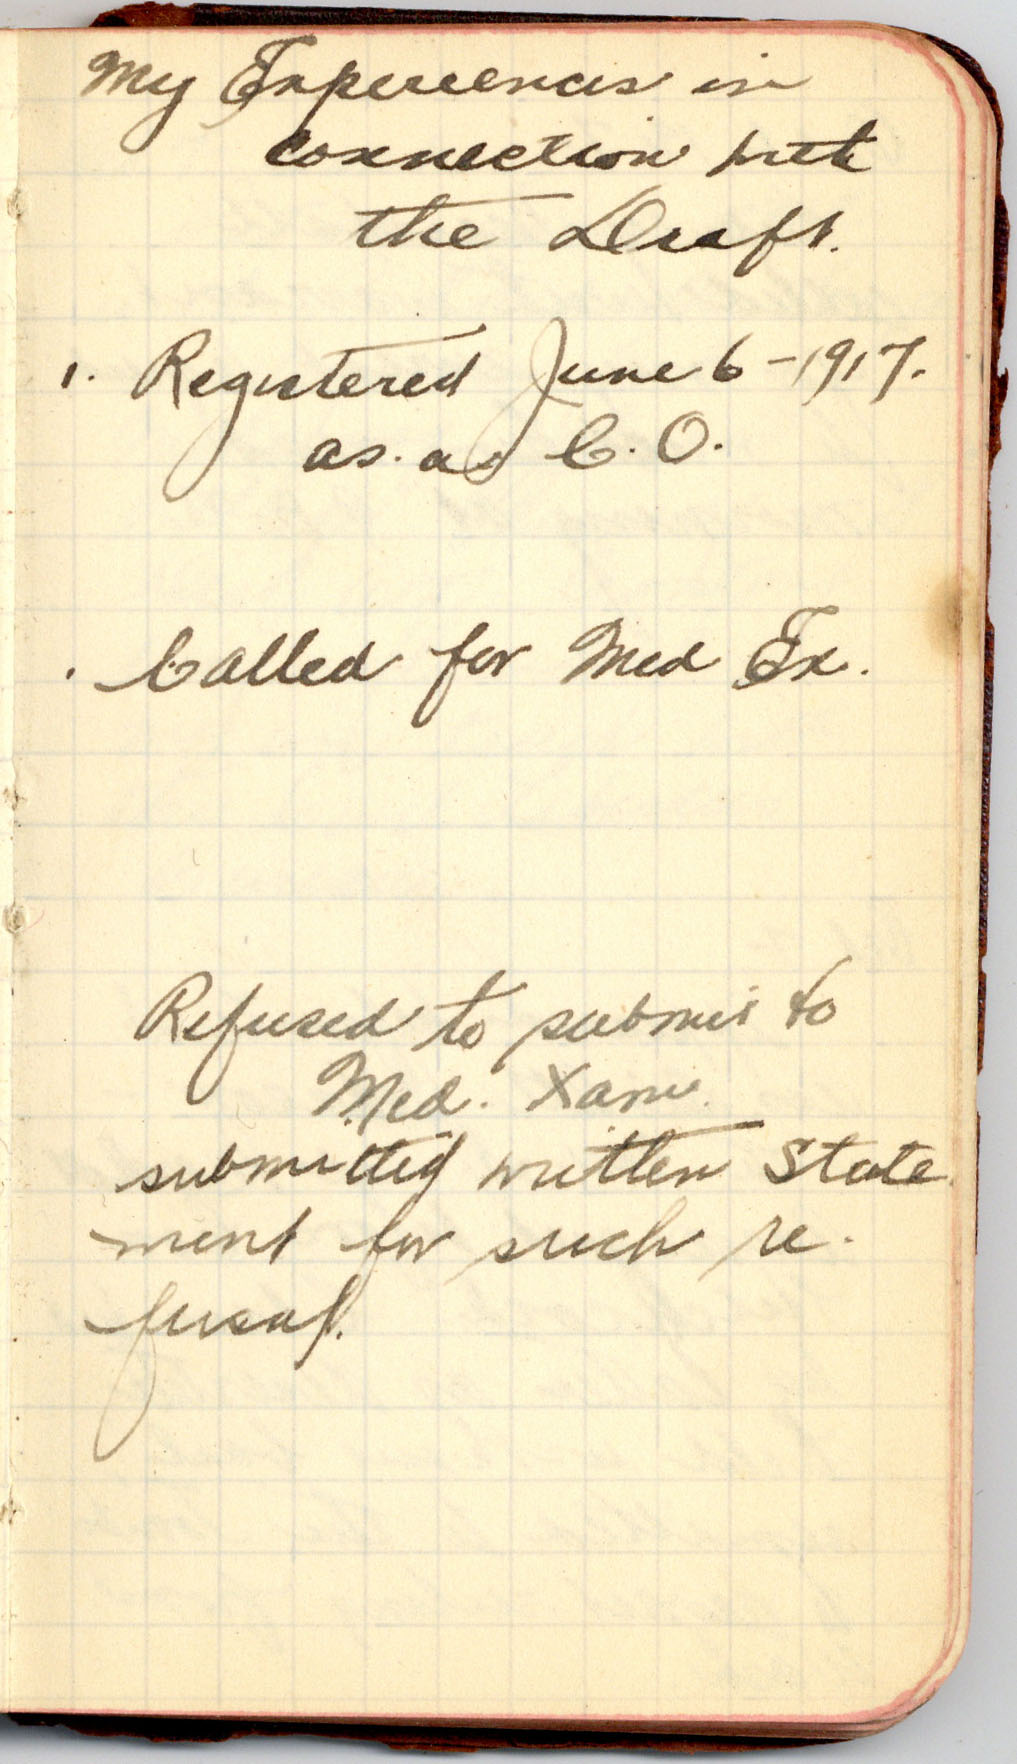 My Experiences in
connection with
the Draft.
1. Registered June 6 - 1917.
as. a. C. O.
. Called for Med Ex.
Refused to submit to
Med. Xam.
submitted written State
ment for such re-
fusal.